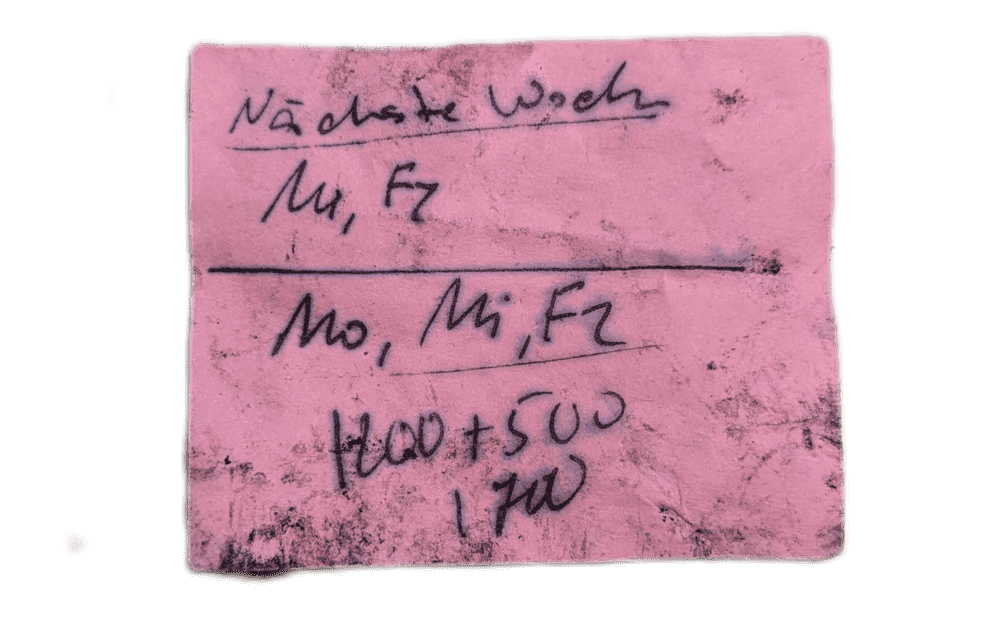 Nächste Woche
Mi, Fr
Mo, Mi, Fr
1200 + 500
1700